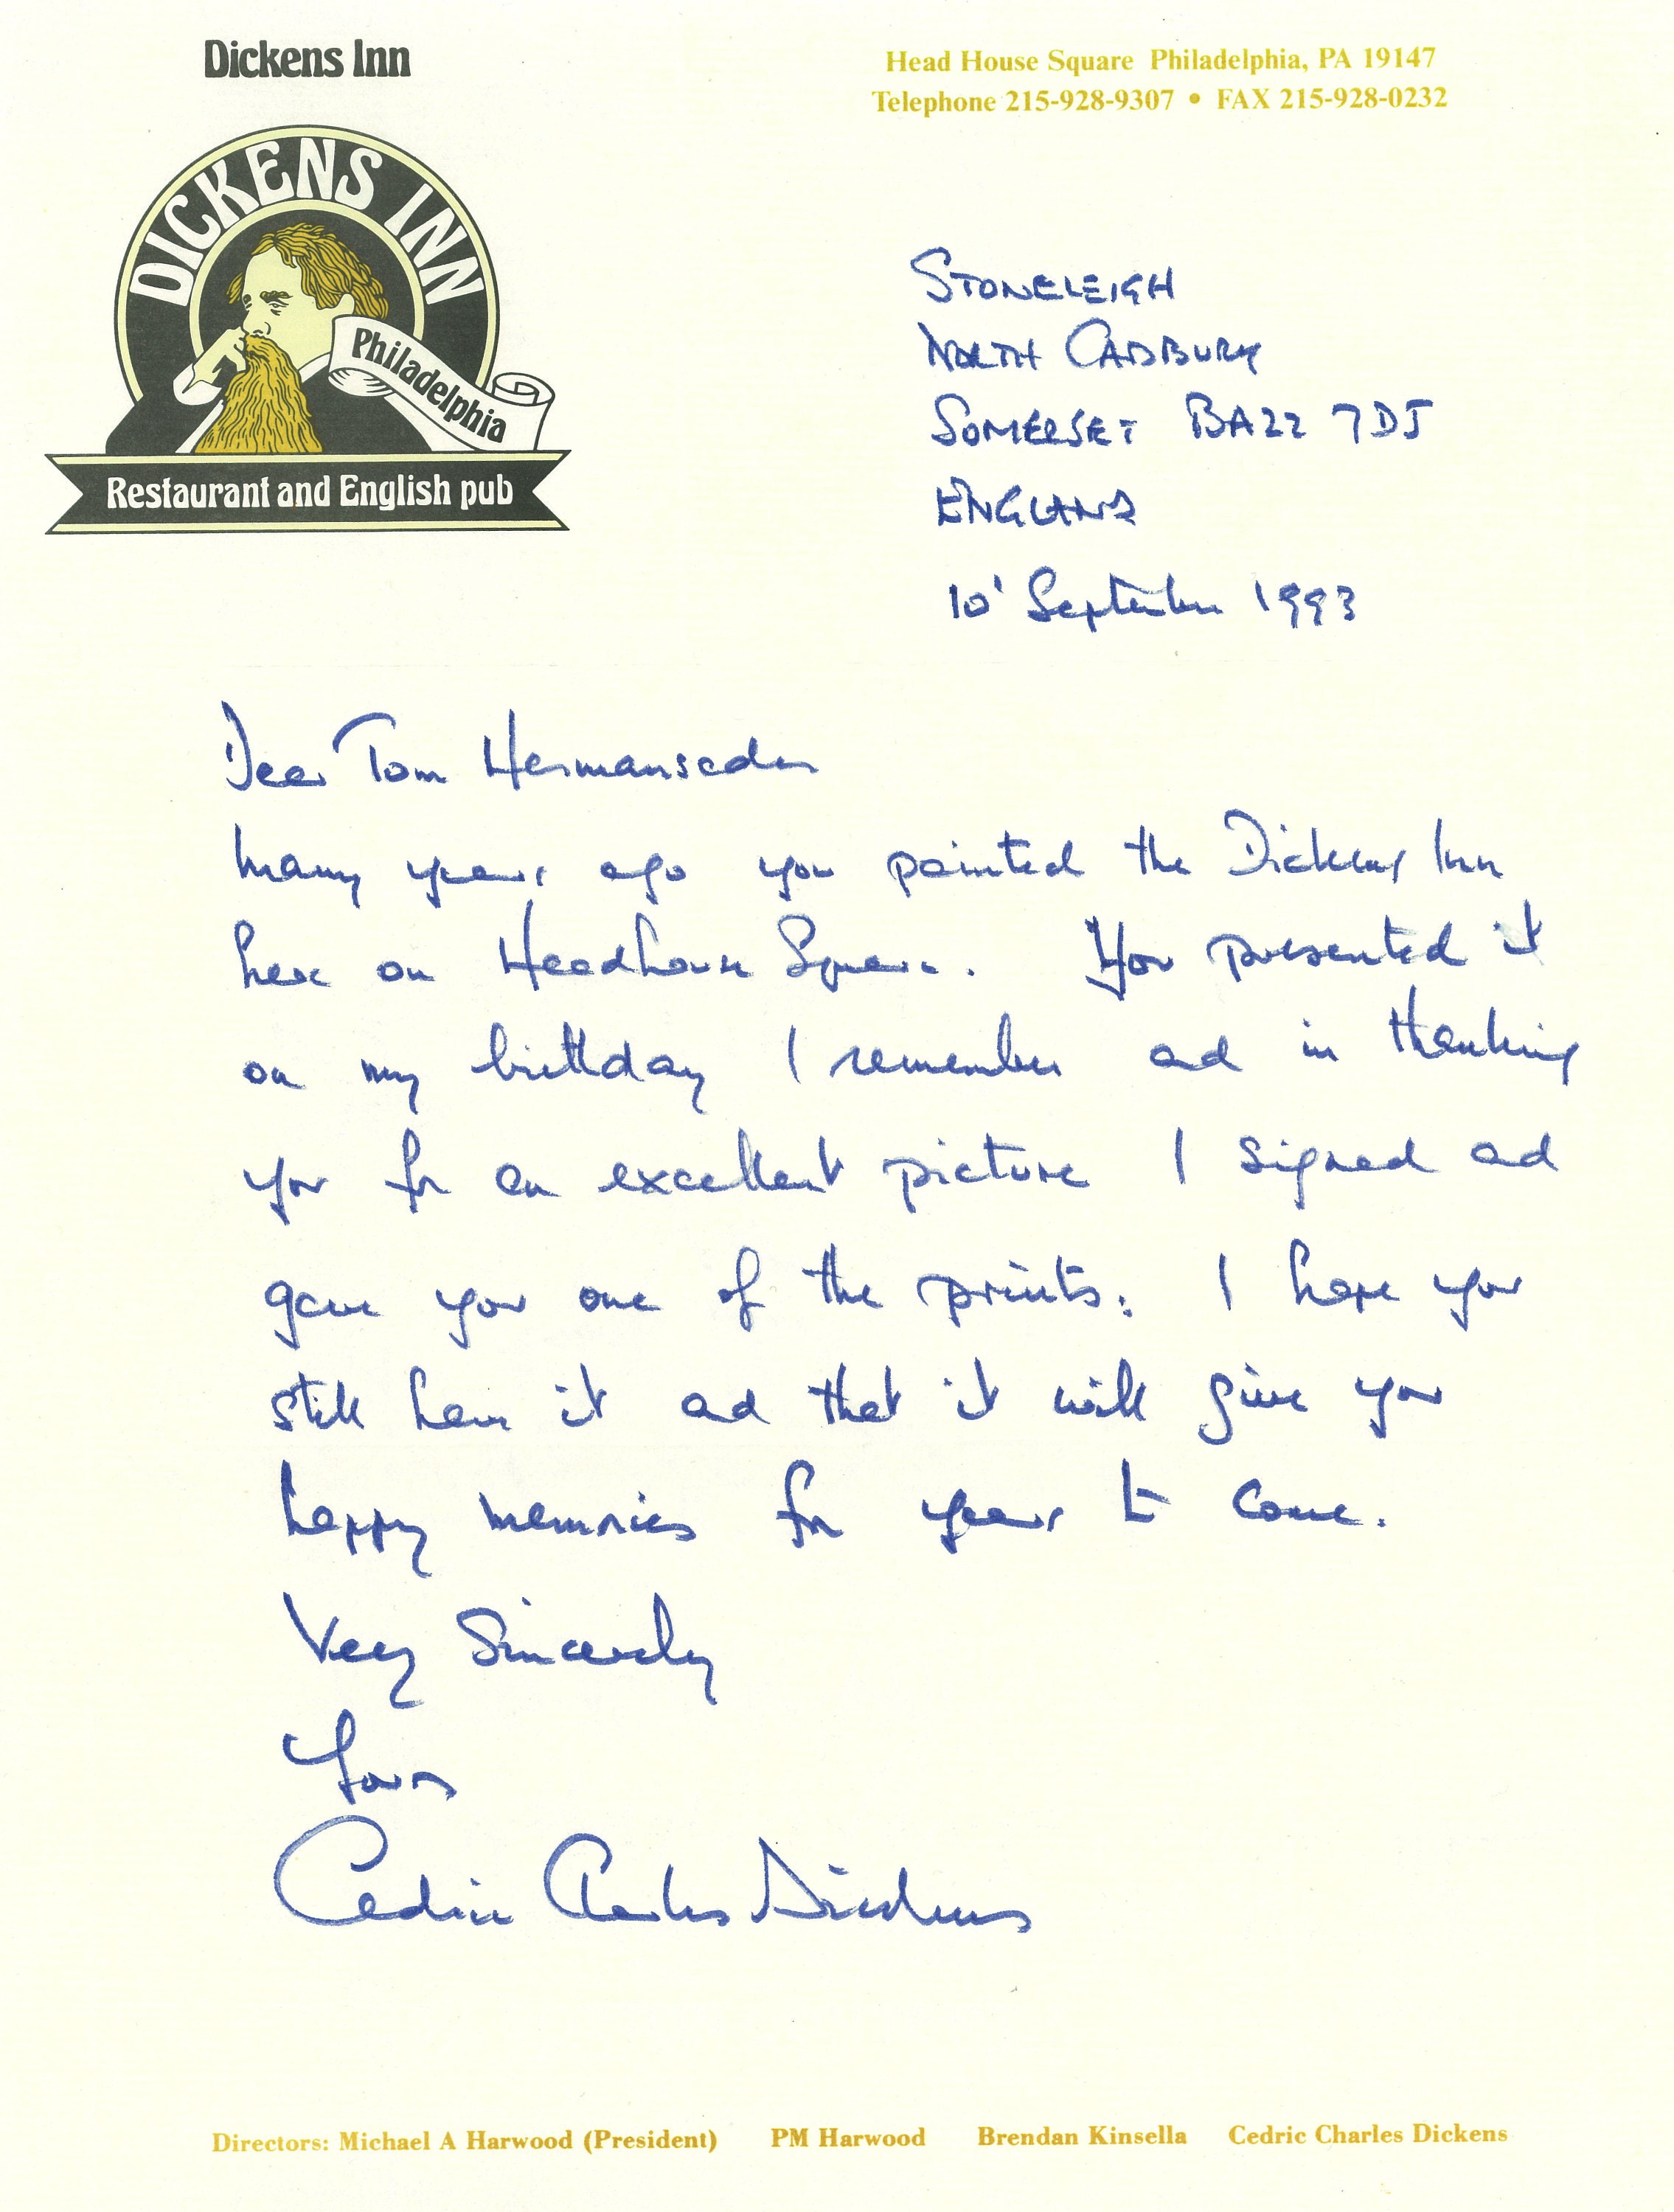 Dickens Inn
Head House Square Philadelphia, PA 19147
Telephone 215-928-9307 • FAX 215-928-0232
DICKENS INN
Philadelphia
Restaurant and English pub
STONELEIGH
NORTH CADBURY
SOMERSET BA22 7DJ
ENGLAND
10' September 1993
Dear Tom Hermansader
Many years ago you painted the Dickens Inn
here on Headhouse Square. You presented it
on my birthday I remember ad in thanking
you for an excellent picture I signed ad
gave you one of the prints: I hope you
still have it ad that it will give you
happy memories for years to come.
Very Sincerely
Yours
Cedric Charles Dickens
Directors: Michael A Harwood (President) PM Harwood Brendan Kinsella Cedric Charles Dickens